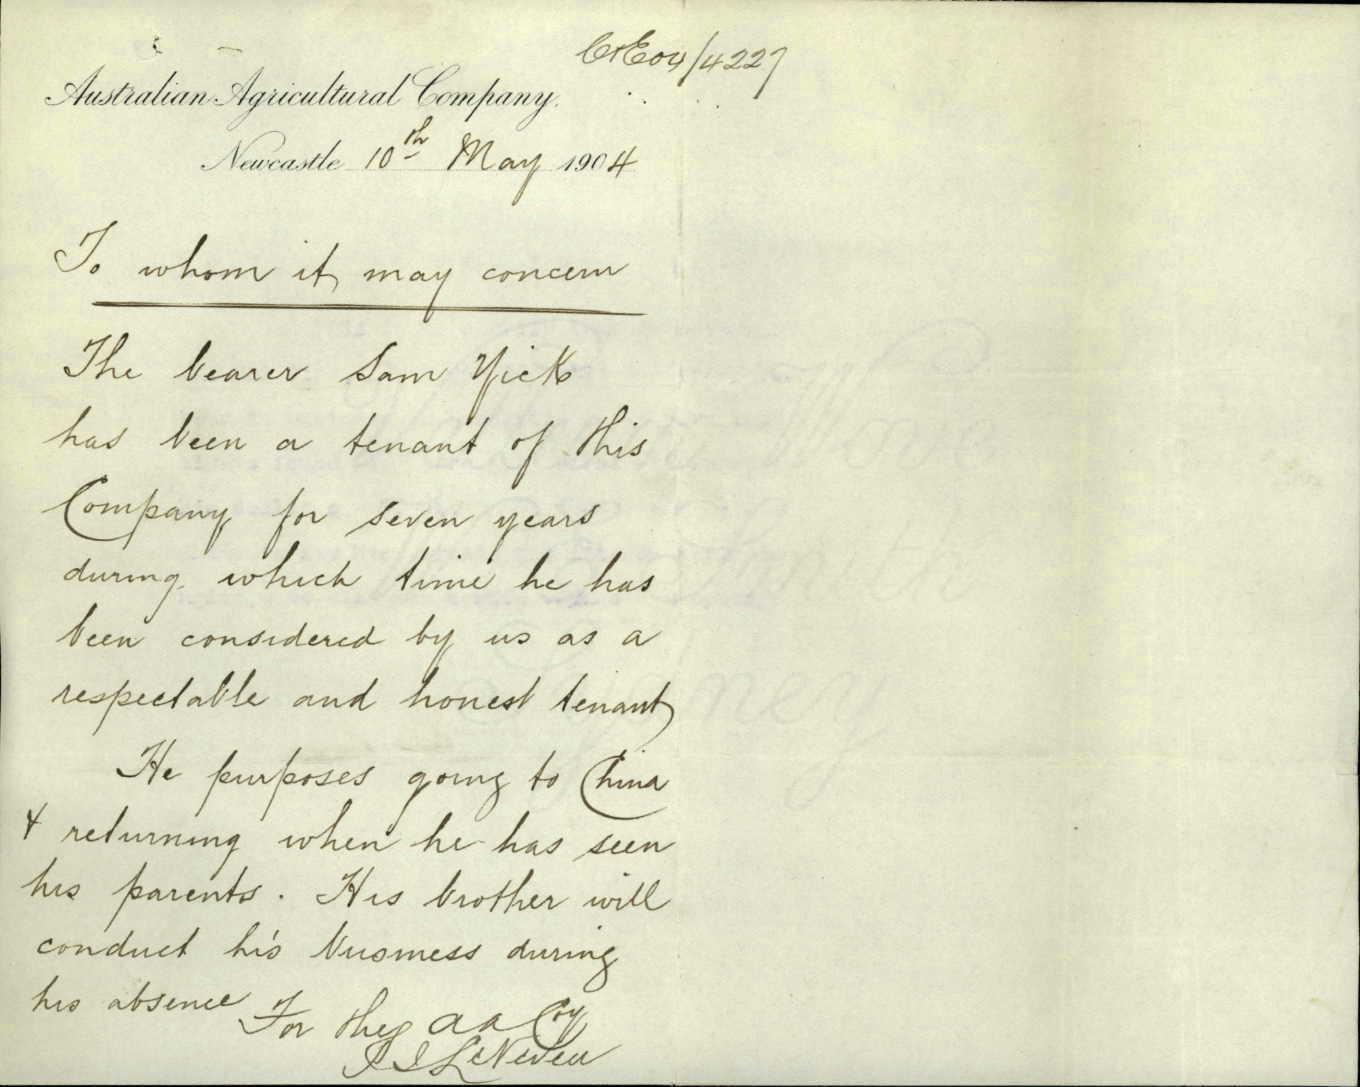 C+E04/4227
Australian Agricultural Company.
Newcastle 10th May 1904
To whom it may concern
The bearer Sam Yick
has been a tenant of this
Company for seven years
during which time he has
been considered by us as a
respectable and honest tenant
He purposes going to China
& returning when he has seen
his parents. His brother will
conduct his business during
his absence
For the AA Coy
LeNeveu